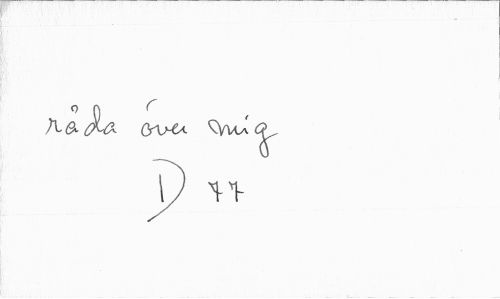 råda över mig
D 77